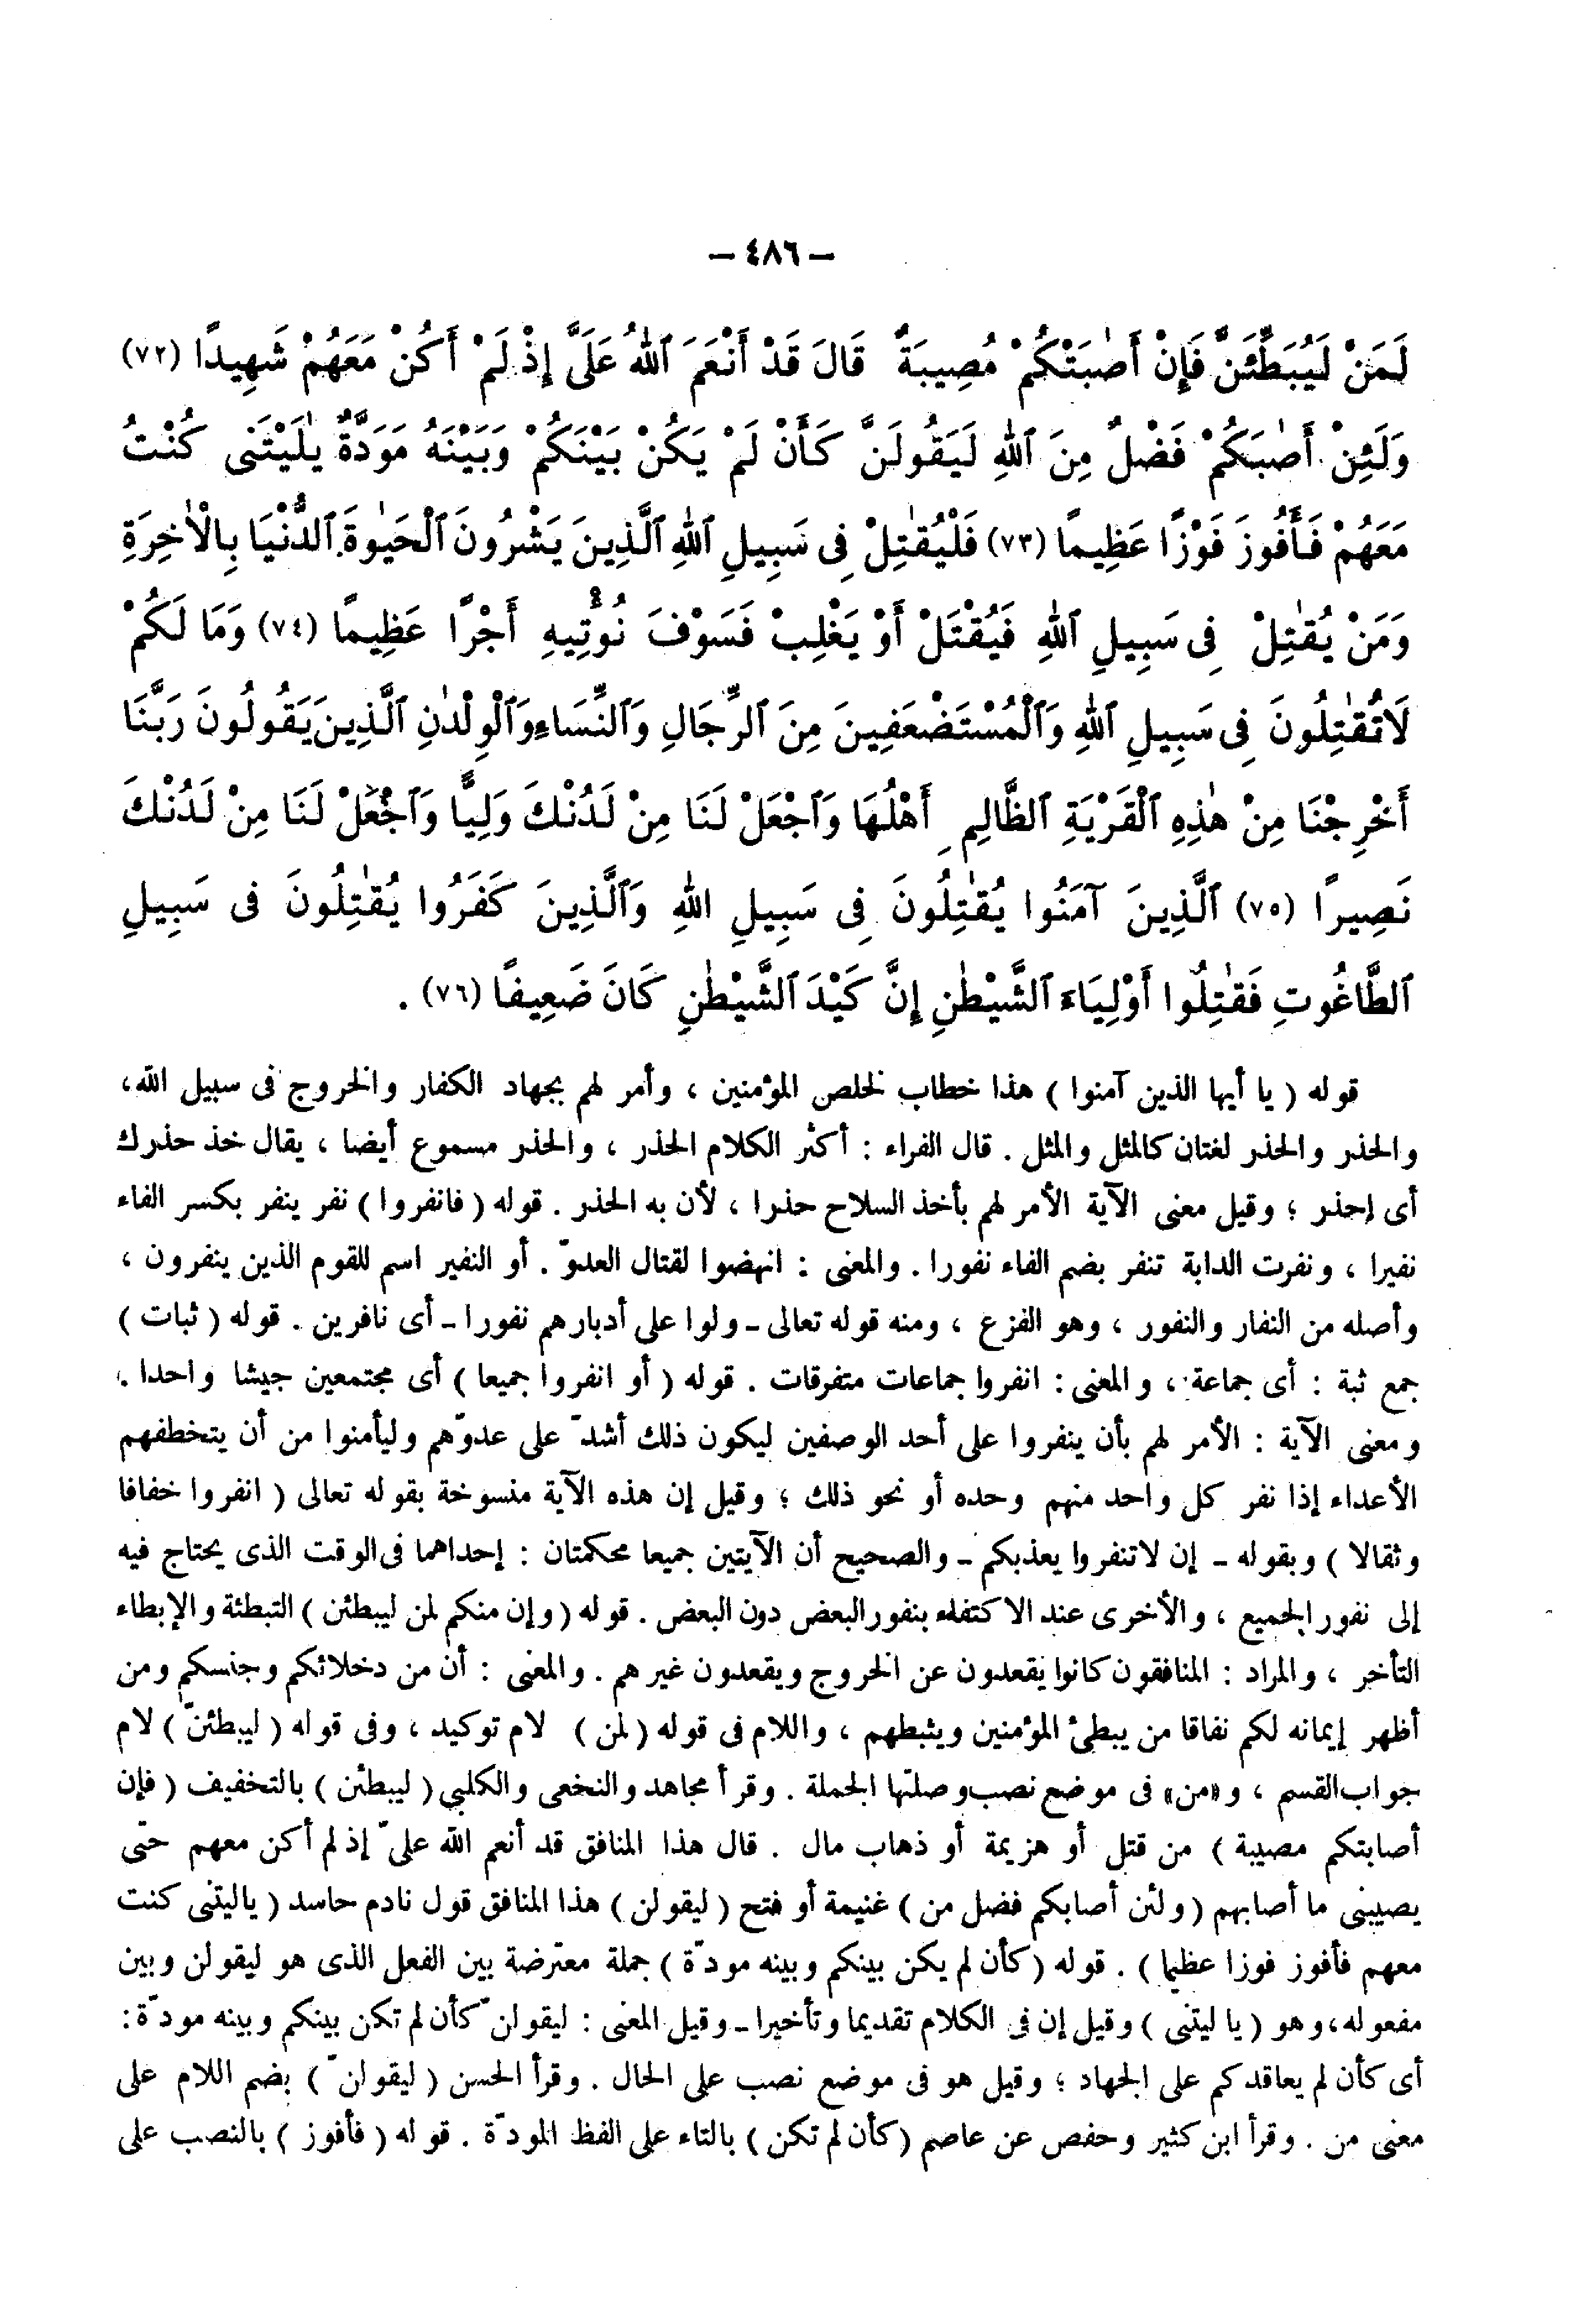 — ٤٨٦ —
لَمَنْ لَيُبَطِّئَنَّ فَإِنْ أَصٰبَتْكُمْ مُصِيبَةٌ قَالَ قَدْ أَنْعَمَ ٱللهُ عَلَىَّ إِذْ لَمْ أَكُنْ مَعَهُمْ شَهِيدًا (٧٢)
وَلَئِنْ أَصٰبَكُمْ فَضْلٌ مِنَ ٱللهِ لَيَقُولَنَّ كَأَنْ لَمْ يَكُنْ بَيْنَكُمْ وَبَيْنَهُ مَوَدَّةٌ يٰلَيْتَنِى كُنْتُ
مَعَهُمْ فَأَفُوزَ فَوْزًا عَظِيمًا (٧٣) فَلْيُقٰتِلْ فِى سَبِيلِ ٱللهِ ٱلَّذِينَ يَشْرُونَ ٱلْحَيٰوةَ ٱلدُّنْيَا بِالْاٰخِرَةِ
وَمَنْ يُقٰتِلْ فِى سَبِيلِ ٱللهِ فَيُقْتَلْ أَوْ يَغْلِبْ فَسَوْفَ نُؤْتِيهِ أَجْرًا عَظِيمًا (٧٤) وَمَا لَكُمْ
لَا تُقٰتِلُونَ فِى سَبِيلِ ٱللهِ وَٱلْمُسْتَضْعَفِينَ مِنَ ٱلرِّجَالِ وَٱلنِّسَاءِ وَٱلْوِلْدٰنِ ٱلَّذِينَ يَقُولُونَ رَبَّنَا
أَخْرِجْنَا مِنْ هٰذِهِ ٱلْقَرْيَةِ ٱلظَّالِمِ أَهْلُهَا وَٱجْعَلْ لَنَا مِنْ لَدُنْكَ وَلِيًّا وَٱجْعَلْ لَنَا مِنْ لَدُنْكَ
نَصِيرًا (٧٥) ٱلَّذِينَ آمَنُوا يُقٰتِلُونَ فِى سَبِيلِ اللهِ وَٱلَّذِينَ كَفَرُوا يُقٰتِلُونَ فِى سَبِيلِ
ٱلطَّاغُوتِ فَقٰتِلُوا أَوْلِيَاءَ ٱلشَّيْطٰنِ إِنَّ كَيْدَ ٱلشَّيْطٰنِ كَانَ ضَعِيفًا (٧٦) .
قوله ( يا أيها الذين آمنوا ) هذا خطاب لخلص المؤمنين ، وأمر لهم بجهاد الكفار والخروج فى سبيل الله،
والحذر والحذر لغتان كالمثل والمثل . قال الفراء : أكثر الكلام الحذر ، والحذر مسموع أيضا ، يقال خذ حذرك
أى إحذر ؛ وقيل معنى الآية الأمر لهم بأخذ السلاح حذرا ، لأن به الحذر . قوله ( فانفروا ) نفر ينفر بكسر الفاء
نفيرا ، ونفرت الدابة تنفر بضم الفاء نفورا . والمعنى : انهضوا لقتال العدوّ . أو النفير اسم للقوم الذين ينفرون ،
وأصله من النفار والنفور ، وهو الفزع ، ومنه قوله تعالى - ولوا على أدبارهم نفورا - أى نافرين . قوله ( ثبات )
جمع ثبة : أى جماعة ، والمعنى : انفروا جماعات متفرقات . قوله ( أو انفروا جميعا ) أى مجتمعين جيشا واحدا .
ومعنى الآية : الأمر لهم بأن ينفروا على أحد الوصفين ليكون ذلك أشدّ على عدوّهم وليأمنوا من أن يتخطفهم
الأعداء إذا نفر كل واحد منهم وحده أو نحو ذلك ؛ وقيل إن هذه الآية منسوخة بقوله تعالى ( انفروا خفافا
وثقالا ) وبقوله - إن لاتنفروا يعذبكم - والصحيح أن الآيتين جميعا محكمتان : إحداهما فى الوقت الذى يحتاج فيه
إلى نفور الجميع ، والأخرى عند الاكتفاء بنفور البعض دون البعض . قوله ( وإن منكم لمن ليبطئن ) التبطئة والإبطاء
التأخر ، والمراد : المنافقون كانوا يقعدون عن الخروج ويقعدون غيرهم . والمعنى : أن من دخلائكم وجنسكم ومن
أظهر إيمانه لكم نفاقا من يبطئ المؤمنين ويثبطهم ، واللام فى قوله ( لمن ) لام توكيد ، وفى قوله ( ليبطئنّ ) لام
جواب القسم ، و«من» فى موضع نصب وصلتها الجملة . وقرأ مجاهد والنخعى والكلبي ( ليبطئن ) بالتخفيف ( فإن
أصابتكم مصيبة ) من قتل أو هزيمة أو ذهاب مال . قال هذا المنافق قد أنعم الله علىّ إذ لم أكن معهم حتى
يصيبنى ما أصابهم ( ولئن أصابكم فضل من ) غنيمة أو فتح ( ليقولن ) هذا المنافق قول نادم حاسد ( ياليتنى كنت
معهم فأفوز فوزا عظيما ) . قوله ( كأن لم يكن بينكم وبينه مودّة ) جملة معترضة بين الفعل الذى هو ليقولن وبين
مفعوله، وهو ( يا ليتنى ) وقيل إن فى الكلام تقديما وتأخيرا - وقيل المعنى : ليقولنّ كأن لم تكن بينكم وبينه مودّة :
أى كأن لم يعاقدكم على الجهاد ؛ وقيل هو فى موضع نصب على الحال . وقرأ الحسن ( ليقولنّ ) بضم اللام على
معنى من . وقرأ ابن كثير وحفص عن عاصم ( كأن لم تكن ) بالتاء على الفظ المودّة . قوله ( فأفوز ) بالنصب على